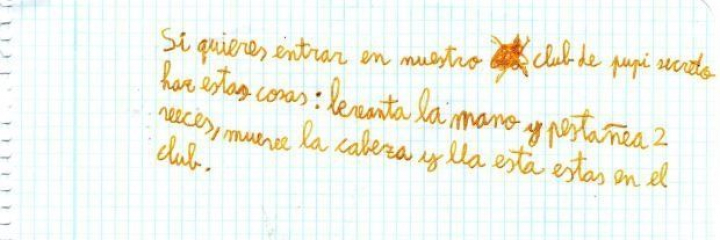 Si quieres entrar en nuestro club de pupi secreto
haz estas cosas: levanta la mano y pestañea 2
veeces, mueve la cabeza y lla esta estas en el
club.